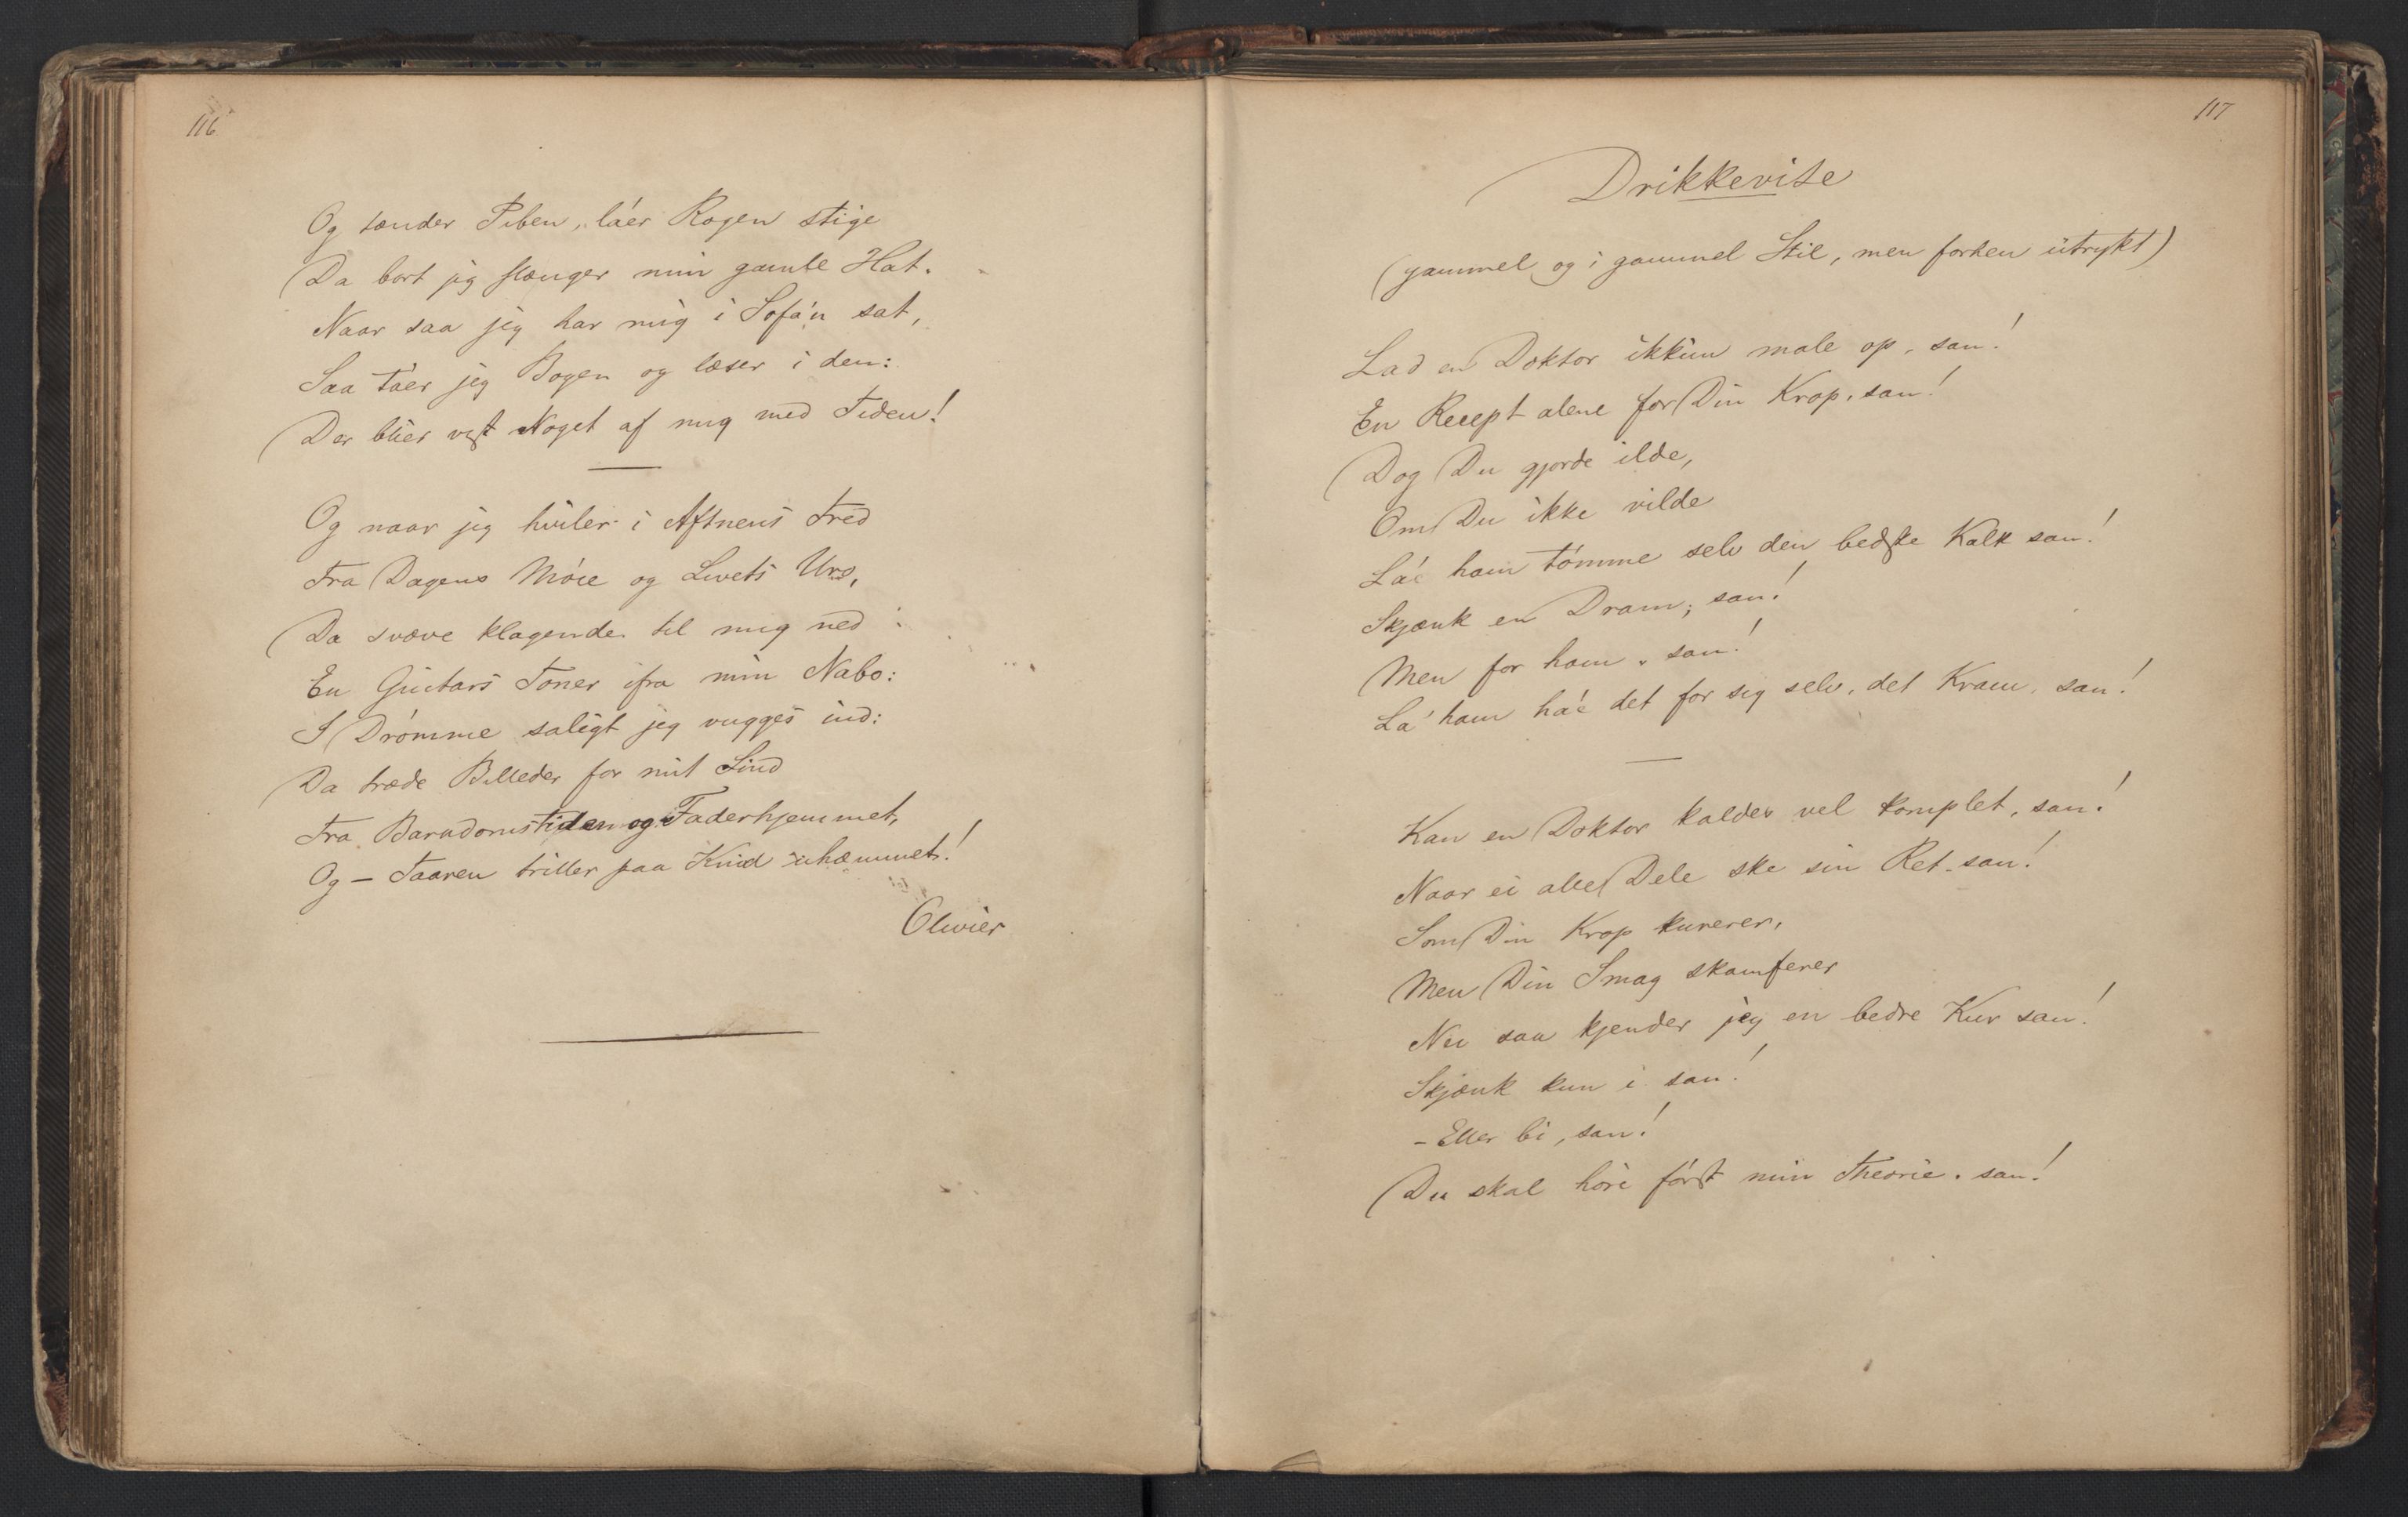 116
Og tænder Piben, láer Rogen stige
Da bort jeg slænger min gamle Hat.
Naar saa jeg har mig i Sofá'n sat,
Saa táer jeg Bogen og læser i den:
Der blier vist Noget af mig med Tiden!
Og naar jeg hviler i Aftnens Fred
Fra Dagens Móie og Livets Uro,
Da svæve klagende til mig ned
En Guitars Toner ifra min Nabo:
I Drómme saligt jeg vugges ind:
Da træde Billeder for mit Sind
Fra Barndomstiden og Faderhjemmet,
Og – Taaren triller paa Kind uhæmmet!
Olivier
117
Drikkevise
(gammel og i gammel Stil, men forhen utrykt)
Lad en Doktor ikkun male op, san!
En Recept alene for Din Krop, san!
Dog Du gjorde ilde,
Om Du ikke vilde
La'e ham tómme selv den bedste Kalk san!
Skjænk en Dram, san!
Men for ham, san!
La' ham ha'e det for sig selv, det Kram, san!
Kan en Doktor kaldes vel komplet, san!
Naar ei alle Dele ske sin Ret, san!
Som Din Krop kurerer,
Men Din Smag skamferer
Nei saa kjender jeg en bedre Kur san!
Skjænk kun i san!
– Eller bi, san!
Du skal hóre fórst min Theorie, san!